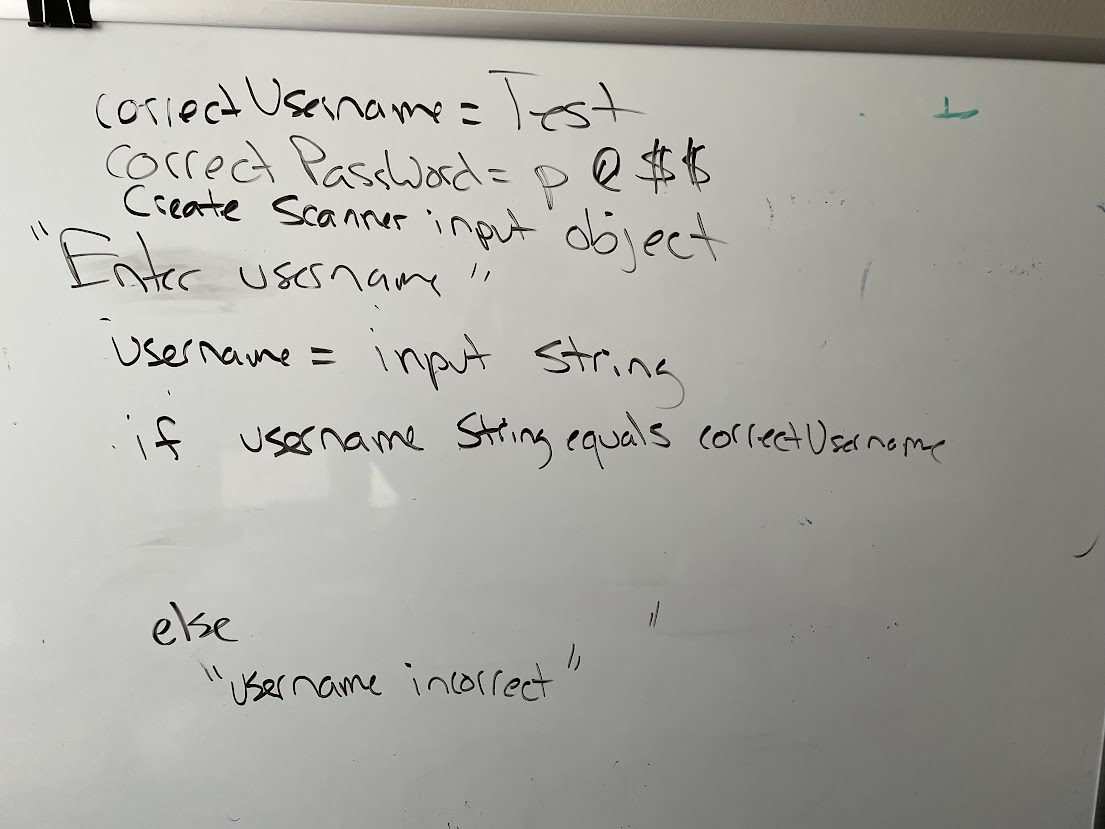 correctUsername = Test
correct Password = p@$$
Create Scanner input object
"Enter username"
username = input String
if username String equals correctUsername
else
"username incorrect"